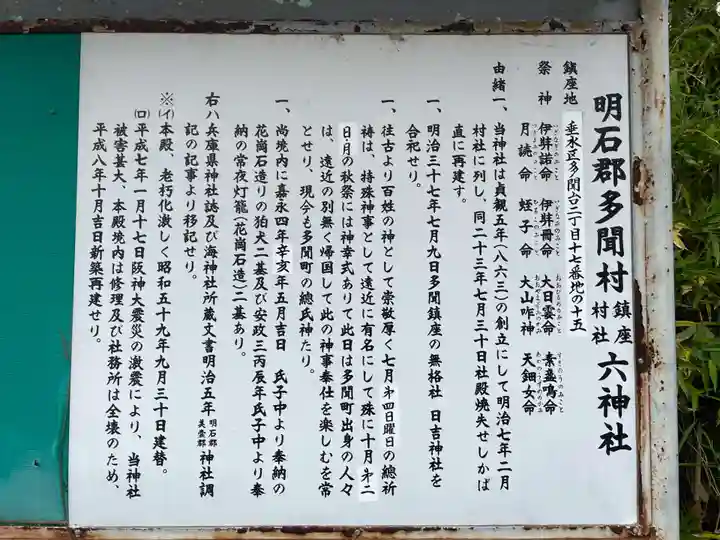 明石郡多聞村 鎮座 村社 六神社
鎮座地 垂水区多聞台二丁目十七番地の十五
祭神 伊弉諾命 伊弉冊命 大日孁命 素盞嗚命
月読命 蛭子命 大山咋神 天鈿女命
由緒一、当神社は貞観五年(八六三)の創立にして明治七年二月
村社に列し、同二十三年七月三十日社殿焼失せしかば
直に再建す。
一、明治三十七年七月九日多聞鎮座の無格社 日吉神社を
合祀せり。
一、往古より百姓の神として崇敬厚く七月第四日曜日の總祈
祷は、特殊神事として遠近に有名にして殊に十月第二
日・月の秋祭には神幸式ありて此日は多聞町出身の人々
は、遠近の別無く帰国して此の神事奉仕を楽しむを常
とせり、現今も多聞町の總氏神たり。
一、尚境内に嘉永四年辛亥年五月吉日 氏子中より奉納の
花崗石造りの狛犬二基及び安政三丙辰年氏子中より奉
納の常夜灯籠(花崗石造)二基あり。
右ハ兵庫県神社誌及び海神社所蔵文書明治五年 明石郡 美嚢郡 神社調
記の記事より移記せり。
※(イ)本殿、老朽化激しく昭和五十九年九月三十日建替。
(ロ)平成七年一月十七日阪神大震災の激震により、当神社
被害甚大、本殿境内は修理及び社務所は全壊のため、
平成八年十月吉日新築再建せり。